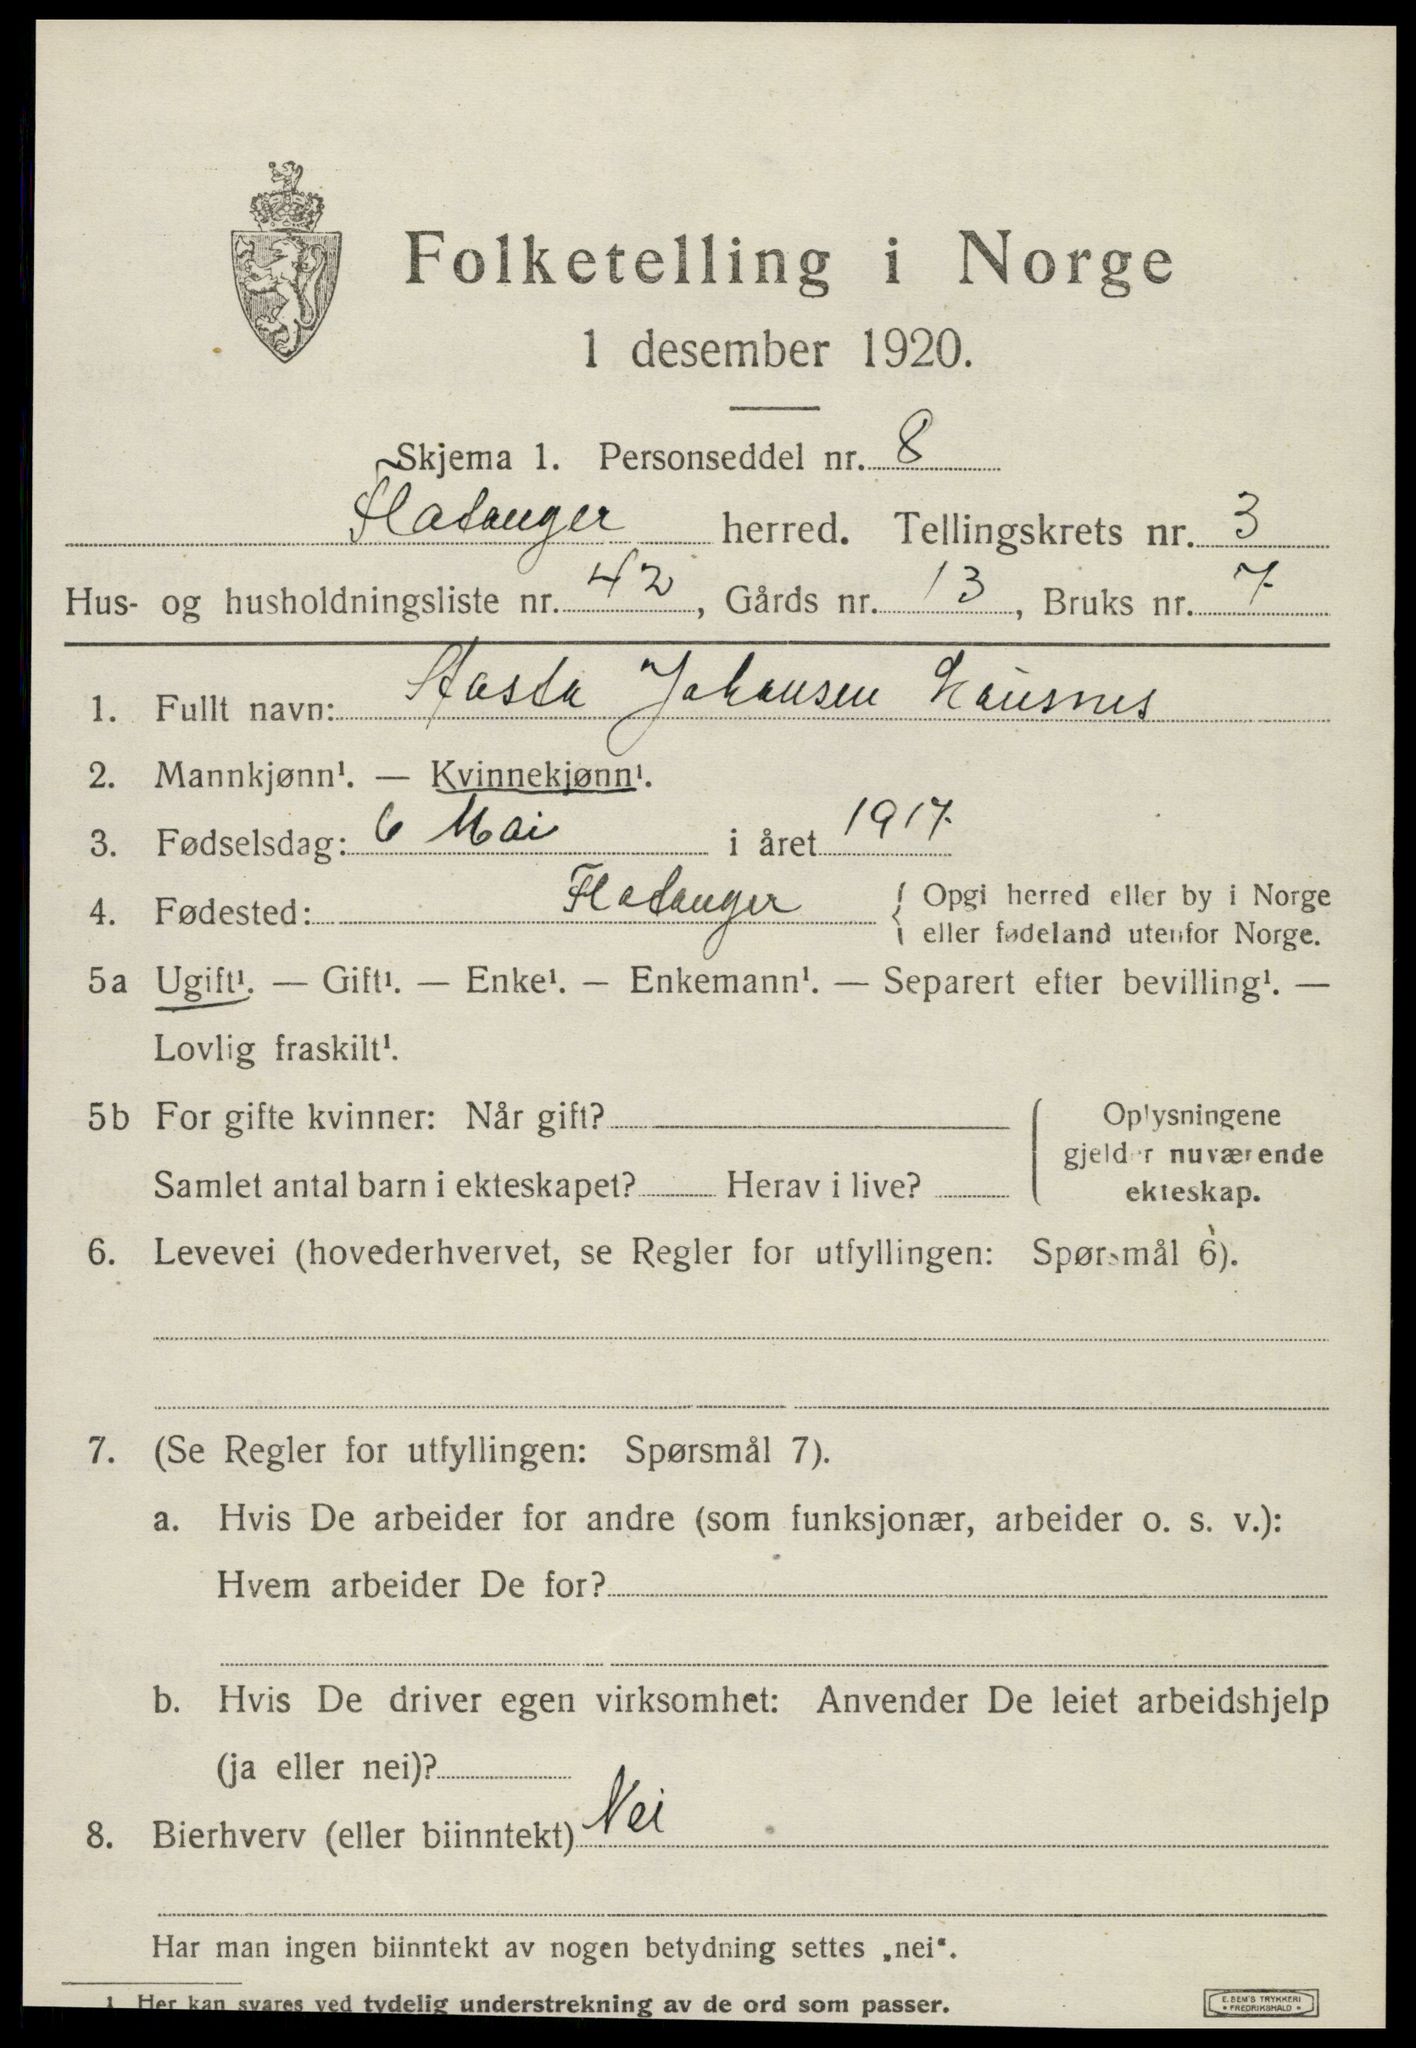 Folketelling i Norge
1 desember 1920.
Skjema 1. Personseddel nr. 8
Flatanger herred. Tellingskrets nr. 3
Hus- og husholdningsliste nr. 42, Gårds nr. 13, Bruks nr. 7
1. Fullt navn: Aasta Johansen Lausnes
2. Mannkjønn¹. — Kvinnekjønn¹.
3. Fødselsdag: 6 Mai i året 1917
4. Fødested: Flatanger { Opgi herred eller by i Norge
eller fødeland utenfor Norge.
5a Ugift¹. — Gift¹. — Enke¹. — Enkemann¹. — Separert efter bevilling¹. —
Lovlig fraskilt¹.
5b For gifte kvinner: Når gift?
Samlet antal barn i ekteskapet? Herav i live?
Oplysningene
gjelder nuværende
ekteskap.
6. Levevei (hovederhvervet, se Regler for utfyllingen: Spørsmål 6).
7. (Se Regler for utfyllingen: Spørsmål 7).
a. Hvis De arbeider for andre (som funksjonær, arbeider o. s. v.):
Hvem arbeider De for?
b. Hvis De driver egen virksomhet: Anvender De leiet arbeidshjelp
(ja eller nei)?
8. Bierhverv (eller biinntekt) Nei
Har man ingen biinntekt av nogen betydning settes „nei“.
1 Her kan svares ved tydelig understrekning av de ord som passer.
E. SEM'S TRYKKERI
• FREDRIKSHALD •